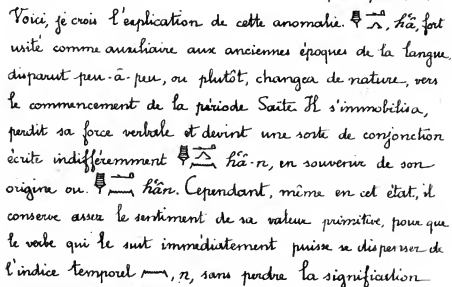 Voici, je crois l'explication de cette anomalie. 𓊢𓂻, ḥâ, fort
usité comme auxiliaire aux anciennes époques de la langue,
disparut peu-à-peu, ou plutôt, changea de nature, vers
le commencement de la période Saïte. Il s'immobilisa,
perdit sa force verbale et devint une sorte de conjonction
écrite indifféremment ḥâ-n, en souvenir de son
origine ou ḥân. Cependant, même en cet état, il
conserve assez le sentiment de sa valeur primitive, pour que
le verbe qui le suit immédiatement puisse se dispenser de
l'indice temporel 𓈖, n, sans perdre la signification